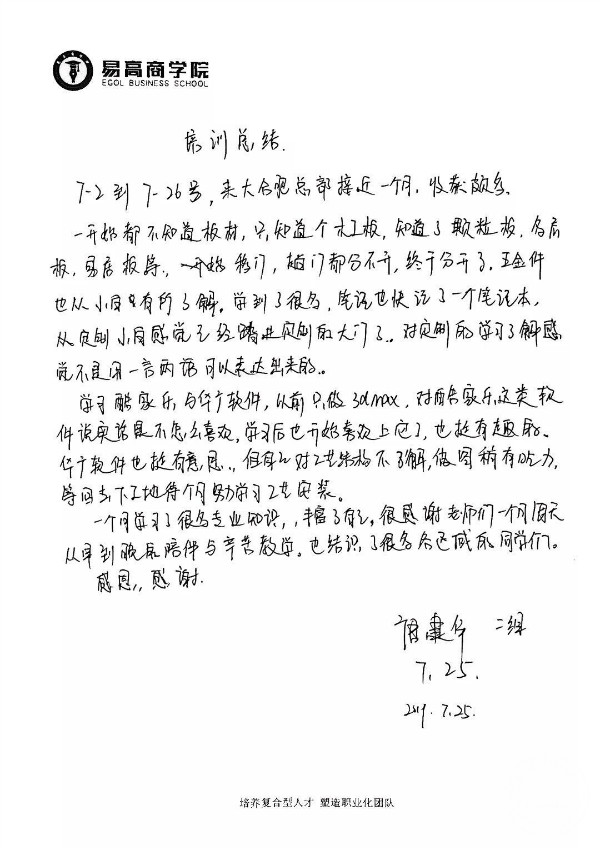 易高商学院
EGOL BUSINESS SCHOOL
培训总结.
7-2到7-26号,来大合肥总部接近一个月,收获颇多
一开始都不知道板材,只知道个木工板,知道了颗粒板,多层
板,易居板等.,一开始移门,趟门都分不开,终于分开了,五金件
也从小白有所了解。学到了很多,笔记也快记了一个笔记本,
从定制小白感觉已经踏进定制的大门了。对定制的学习了解感
觉不是用一言两语可以表达出来的。
学习酷家乐与华广软件,以前只做3dmax,对酷家乐这类软
件说实话是不怎么喜欢,学习后也开始喜欢上它了,也挺有趣的。
华广软件也挺有意思.,但自己对工艺结构不了解,做图稍有吃力,
等回去下工地待个月努力学习工艺安装。
一个月学习了很多专业知识,,丰富了自己。很感谢老师们一个月每天
从早到晚陪伴与辛苦教学。也结识了很多各区域的同学们。
感恩,,感谢.
二组
7.25.
2019.7.25.
培养复合型人才 塑造职业化团队